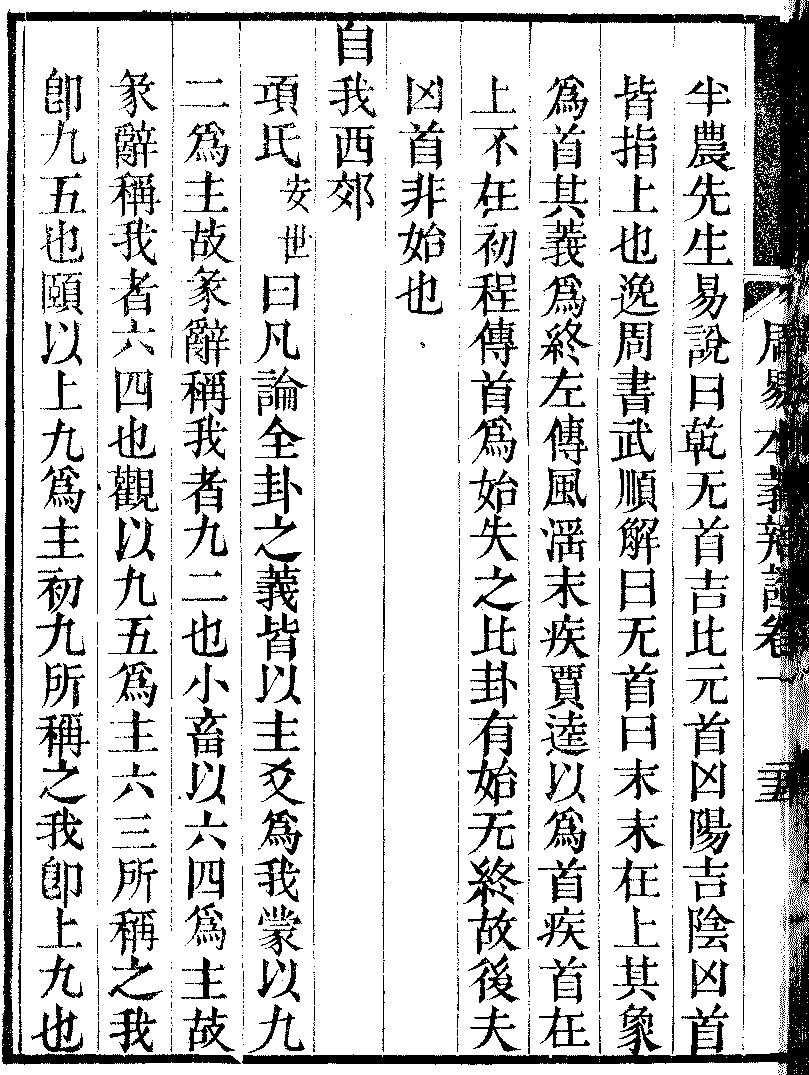 周易本義辨證卷一
半農先生易說曰乾无首吉比元首凶陽吉陰凶首
皆指上也逸周書武順解曰无首曰末末在上其象
爲首其義爲終左傳風滛末疾賈逵以爲首疾首在
上不在初程傳首爲始失之比卦有始无終故後夫
凶首非始也
自我西郊
項氏安世曰凡論全卦之義皆以主爻爲我蒙以九
二爲主故彖辭稱我者九二也小畜以六四爲主故
彖辭稱我者六四也觀以九五爲主六三所稱之我
卽九五也頤以上九爲主初九所稱之我卽上九也